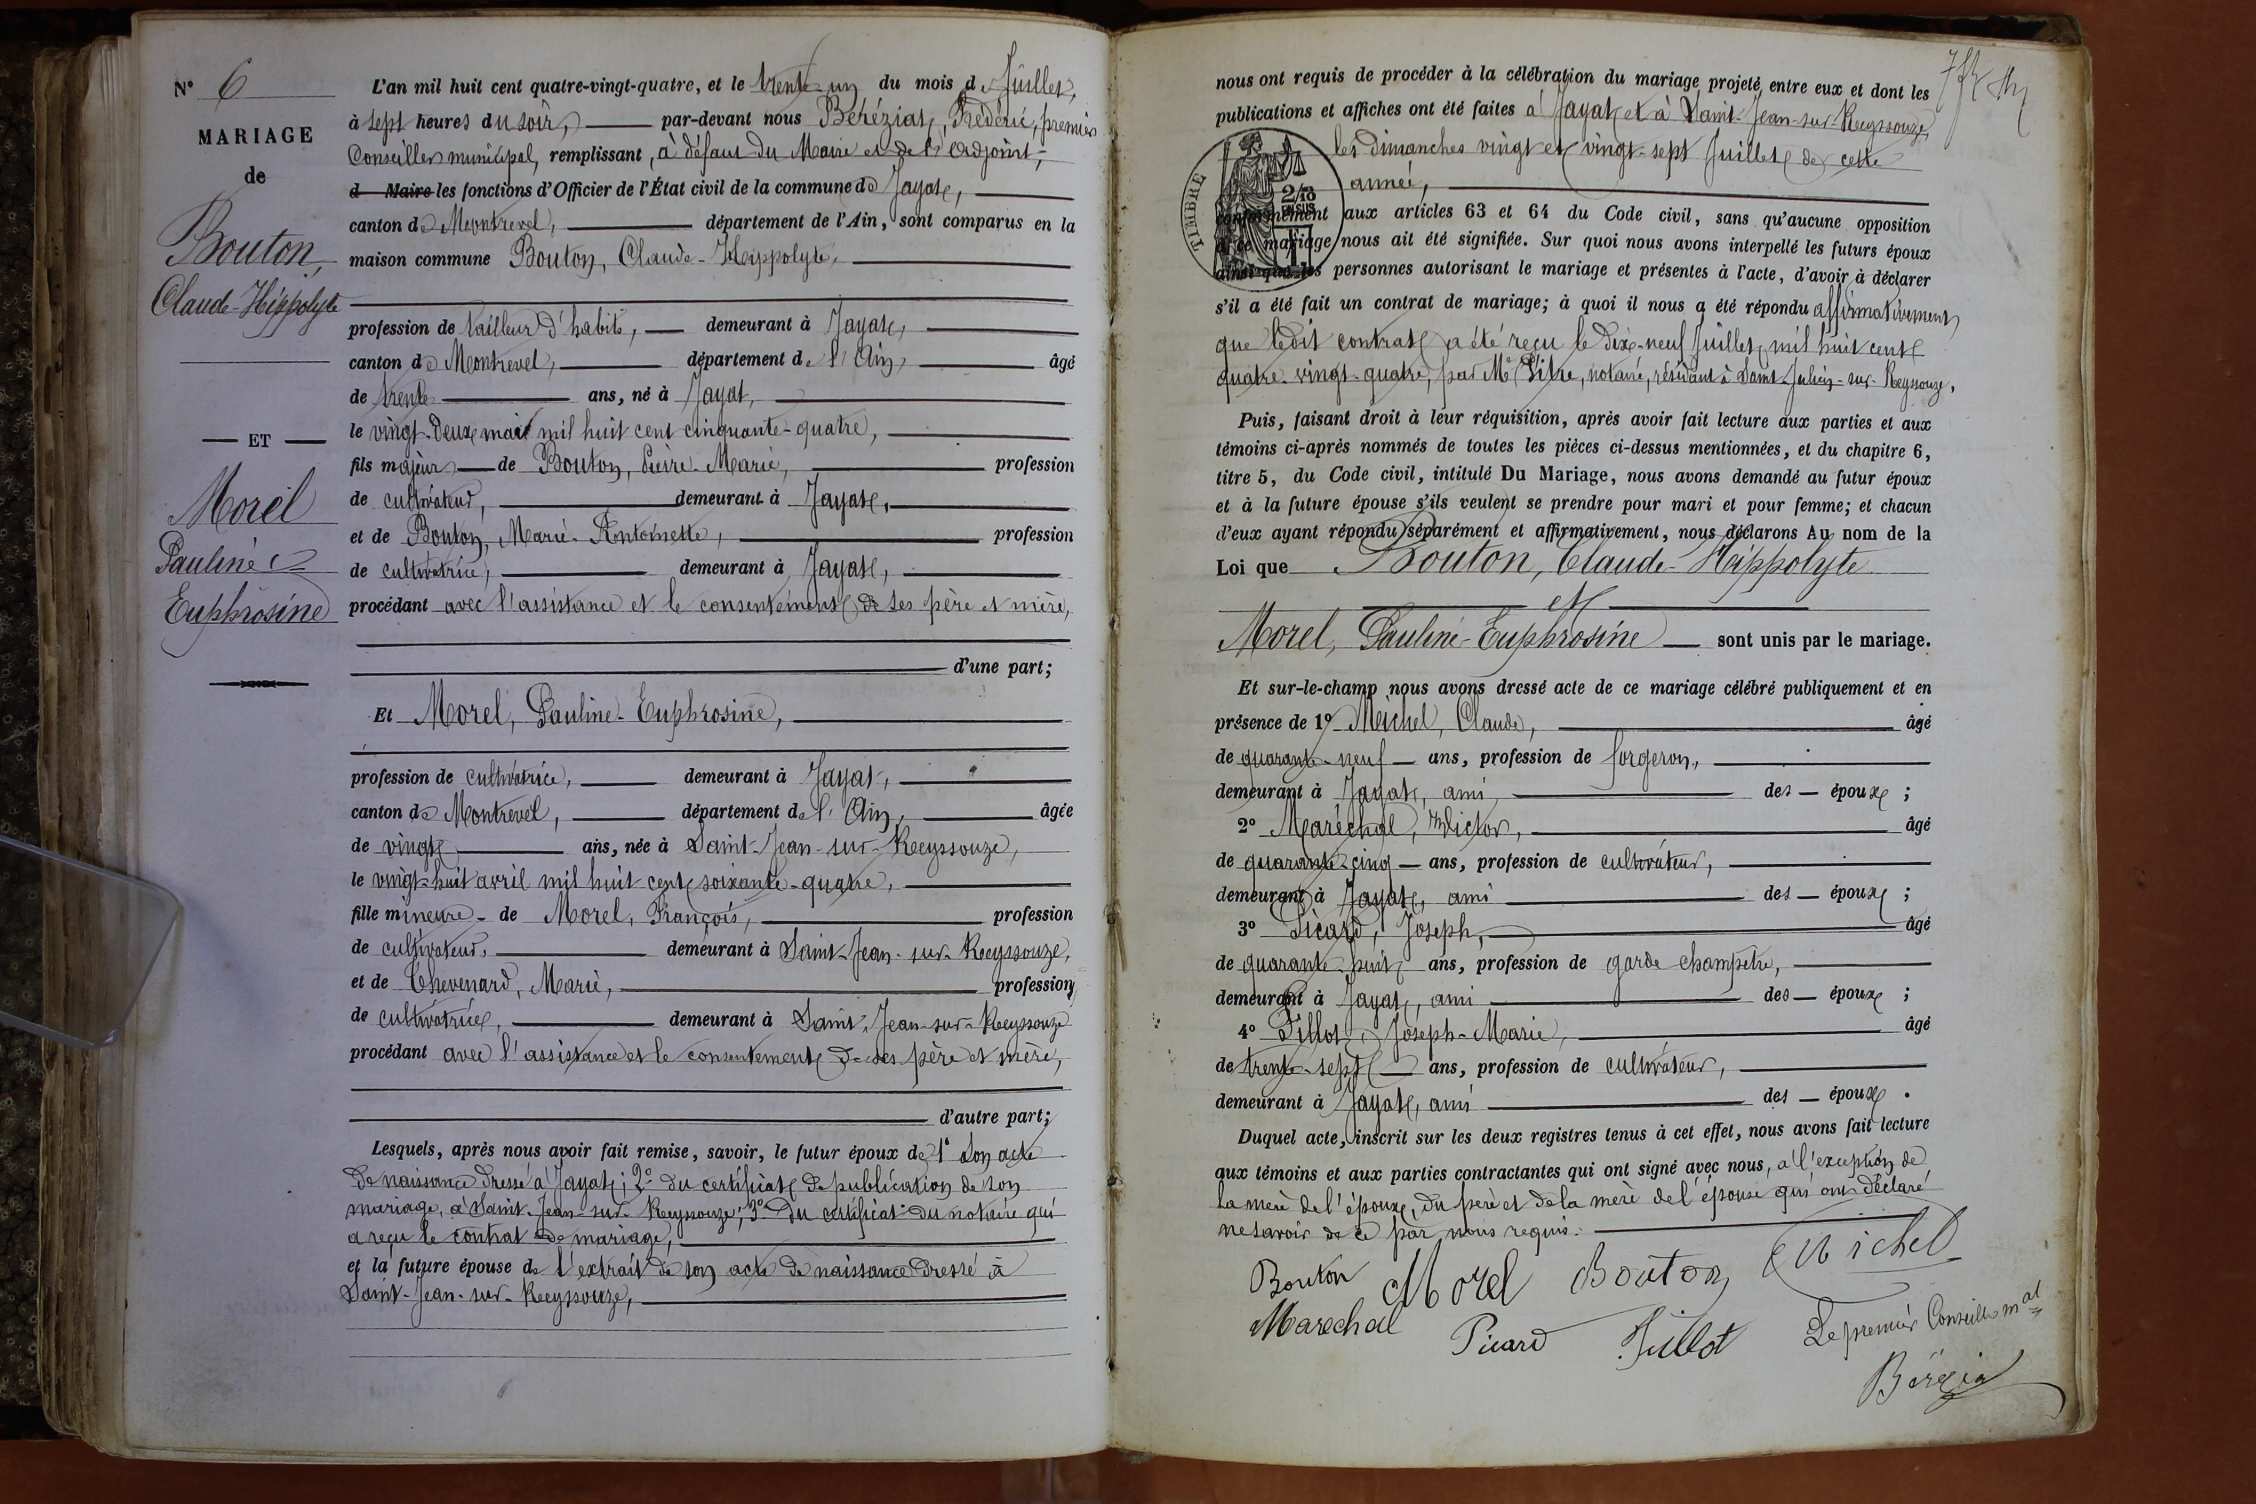 N° 6
MARIAGE
de
Bouton,
Claude-Hippolyte
ET
Morel
Pauline
Euphrosine
L'an mil huit cent quatre-vingt-quatre, et le trente-un du mois de Juillet,
à sept heures du soir, par-devant nous Béréziat, Frédéric, premier
Conseiller municipal, remplissant, à défaut du Maire et de l'adjoint,
d Maire les fonctions d'Officier de l'État civil de la commune de Jayat,
canton de Montrevel, département de l'Ain, sont comparus en la
maison commune Bouton, Claude-Hippolyte,
profession de tailleur d'habits, demeurant à Jayat,
canton de Montrevel, département de l'Ain, âgé
de trente ans, né à Jayat,
le vingt-deux mai mil huit cent cinquante-quatre,
fils majeur de Bouton, Pierre-Marie, profession
de cultivateur, demeurant à Jayat,
et de Bouton, Marie-Antoinette, profession
de cultivatrice, demeurant à Jayat,
procédant avec l'assistance et le consentement de ses père et mère,
d'une part;
Et Morel, Pauline-Euphrosine,
profession de cultivatrice, demeurant à Jayat,
canton de Montrevel, département de l'Ain, âgée
de vingt ans, née à Saint-Jean-sur-Reyssouze,
le vingt-huit avril mil huit cent soixante-quatre,
fille mineure de Morel, François, profession
de cultivateur, demeurant à Saint-Jean-sur-Reyssouze,
et de Chevenard, Marie, profession
de cultivatrice, demeurant à Saint-Jean-sur-Reyssouze
procédant avec l'assistance et le consentement de ses père et mère,
d'autre part;
Lesquels, après nous avoir fait remise, savoir, le futur époux de 1° son acte
de naissance dressé à Jayat; 2° du certificat de publication de son
mariage, à Saint-Jean-sur-Reyssouze; 3° du certificat du notaire qui
a reçu le contrat de mariage,
et la future épouse de l'extrait de son acte de naissance dressé à
Saint-Jean-sur-Reyssouze,
nous ont requis de procéder à la célébration du mariage projeté entre eux et dont les
publications et affiches ont été faites à Jayat et à Saint-Jean-sur-Reyssouze,
les dimanches vingt et vingt-sept Juillet de cette
année,
TIMBRE
2/10
EN SUS
conformément aux articles 63 et 64 du Code civil, sans qu'aucune opposition
à ce mariage nous ait été signifiée. Sur quoi nous avons interpellé les futurs époux
ainsi que les personnes autorisant le mariage et présentes à l'acte, d'avoir à déclarer
s'il a été fait un contrat de mariage; à quoi il nous a été répondu affirmativement,
que ledit contrat a été reçu le dix-neuf Juillet mil huit cent
quatre-vingt-quatre, par Me Vitre, notaire, résidant à Saint-Julien-sur-Reyssouze,
Puis, faisant droit à leur réquisition, après avoir fait lecture aux parties et aux
témoins ci-après nommés de toutes les pièces ci-dessus mentionnées, et du chapitre 6,
titre 5, du Code civil, intitulé Du Mariage, nous avons demandé au futur époux
et à la future épouse s'ils veulent se prendre pour mari et pour femme; et chacun
d'eux ayant répondu séparément et affirmativement, nous déclarons Au nom de la
Loi que Bouton, Claude-Hippolyte
et
Morel, Pauline-Euphrosine sont unis par le mariage.
Et sur-le-champ nous avons dressé acte de ce mariage célébré publiquement et en
présence de 1° Michel, Claude, âgé
de quarante-neuf ans, profession de forgeron,
demeurant à Jayat, ami des époux;
2° Maréchal, Victor, âgé
de quarante-cinq ans, profession de cultivateur,
demeurant à Jayat, ami des époux;
3° Picard, Joseph, âgé
de quarante-huit ans, profession de garde champêtre,
demeurant à Jayat, ami des époux;
4° Pillot, Joseph-Marie, âgé
de trente-sept ans, profession de cultivateur,
demeurant à Jayat, ami des époux.
Duquel acte, inscrit sur les deux registres tenus à cet effet, nous avons fait lecture
aux témoins et aux parties contractantes qui ont signé avec nous, à l'exception de
la mère de l'époux, du père et de la mère de l'épouse qui ont déclaré
ne savoir de ce par nous requis.
Bouton Morel Bouton Michel
Marechal Picard Pillot Le premier Conseiller mal
Béréziat